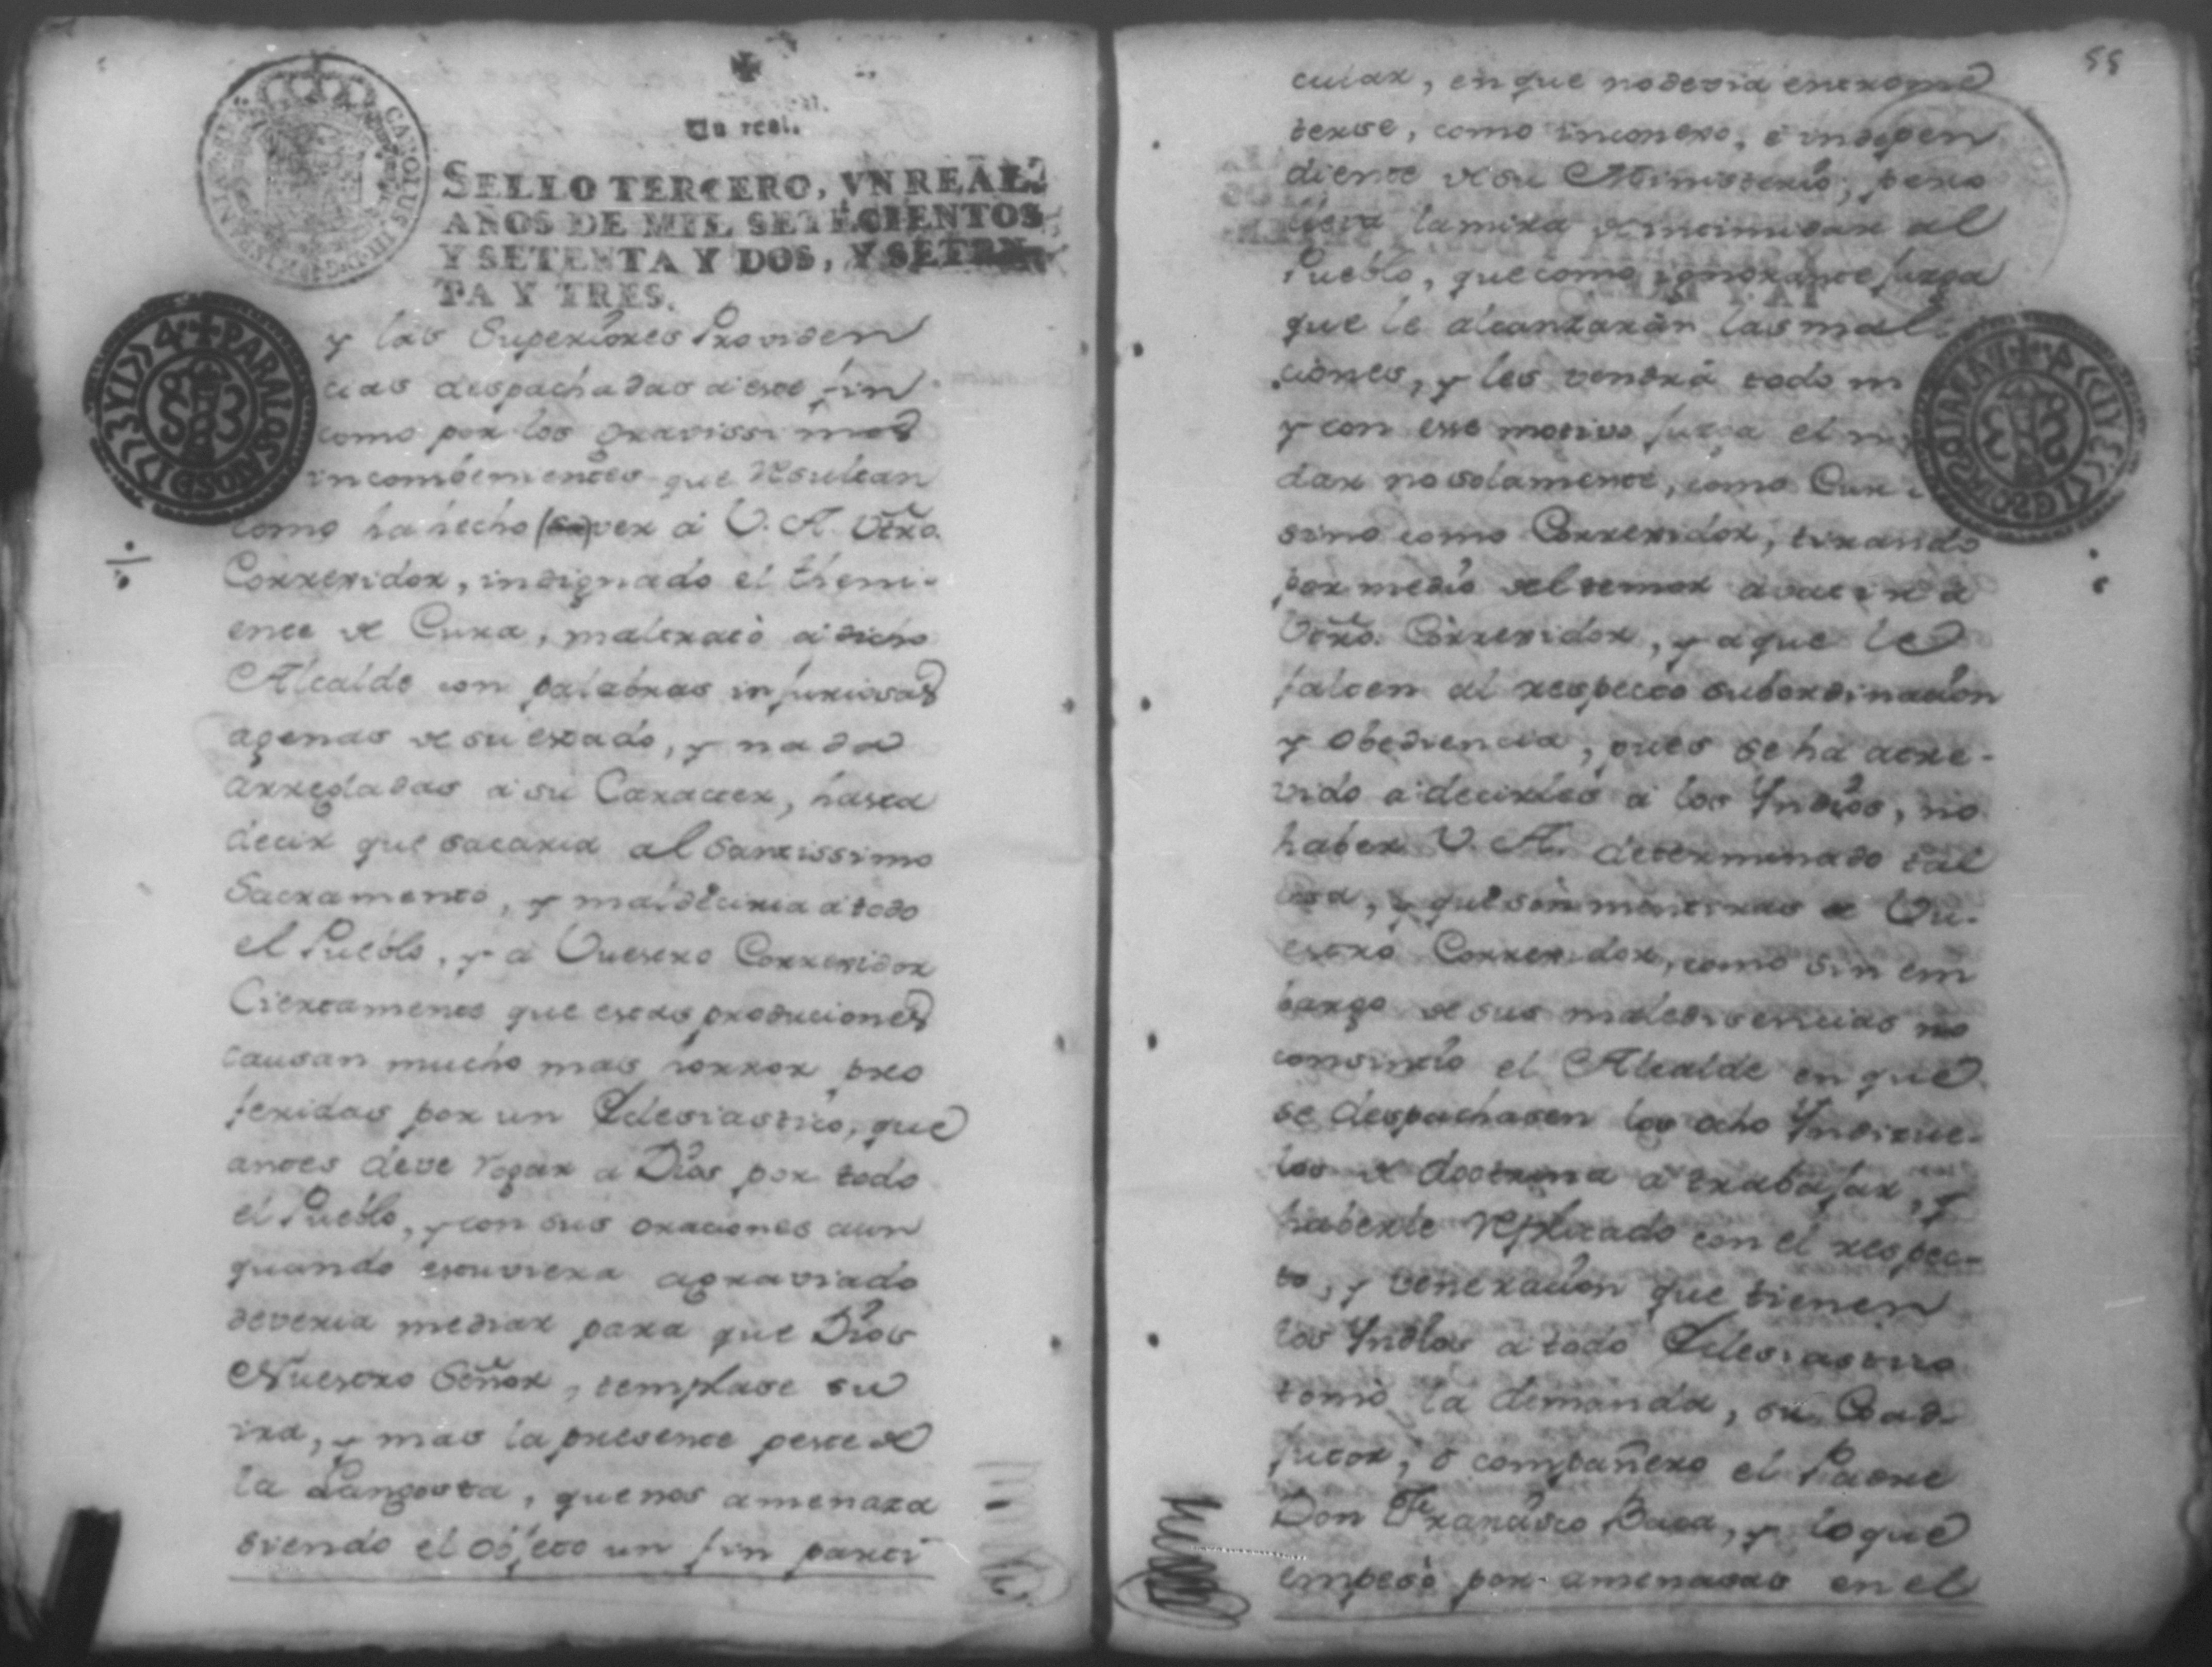 Un real.
SELLO TERCERO, VN REAL,
AÑOS DE MIL SETECIENTOS
Y SETENTA Y DOS, Y SETEN-
TA Y TRES.
PARA LOS AÑOS D
y las Superiores Providen
cias despachadas a este fin
como por los gravissimos
incombenientes que resultan
como ha hecho (sa)ver á V. A. Vtrô.
Corregidor, indignado el theni-
ente de Cura, maltrató á dicho
Alcalde con palabras injuriosas
agenas de su estado, y nada
arregladas a su Caracter, hasta
decir que sacaria al Santissimo
Sacramento, y maldeciria á todo
el Pueblo, y á Vuestro Corregidor
Ciertamente que estas produciones
causan mucho mas horror pro
feridas por un Eclesiastico, que
antes deve rogar a Dios por todo
el Pueblo, y con sus oraciones aun
quando estuviera agraviado
deveria mediar para que Dios
Nuestro Señor, templase su
ira, y mas la presente peste de
la Langosta, que nos amenaza
siendo el objeto un fin parti
55
cular, en que no devia entrome
terse, como inconexo, é indepen
diente de su Ministerio; pero
lleva la mira de intimidar al
Pueblo, que como ignorante juzga
que le alcanzarán las mal
ciones, y les vendrá todo m
y con este motivo juzga el
dar no solamente, como Cur
sino como Corregidor, tirando
por medio del temor a
Vtrô. Corregidor, y a que le
falten al respecto subordinacion
y obediencia, pues se ha atre-
vido a decirles á los Yndios, no
haber V. A. determinado tal
cosa, y que son mentiras de Vu-
estro Corregidor, como sin em
bargo de sus maledisencias no
consintio el Alcalde en que
se despachasen los ocho Yndisue-
los de doctrina a trabajar, y
haberle replicado con el respec-
to, y veneracion que tienen
los Yndios a todo Eclesiastico
tomó la demanda, su Coad-
jutor, ó compañero el Padre
Don Francisco Baca, y lo que
empesó por amenasas en el